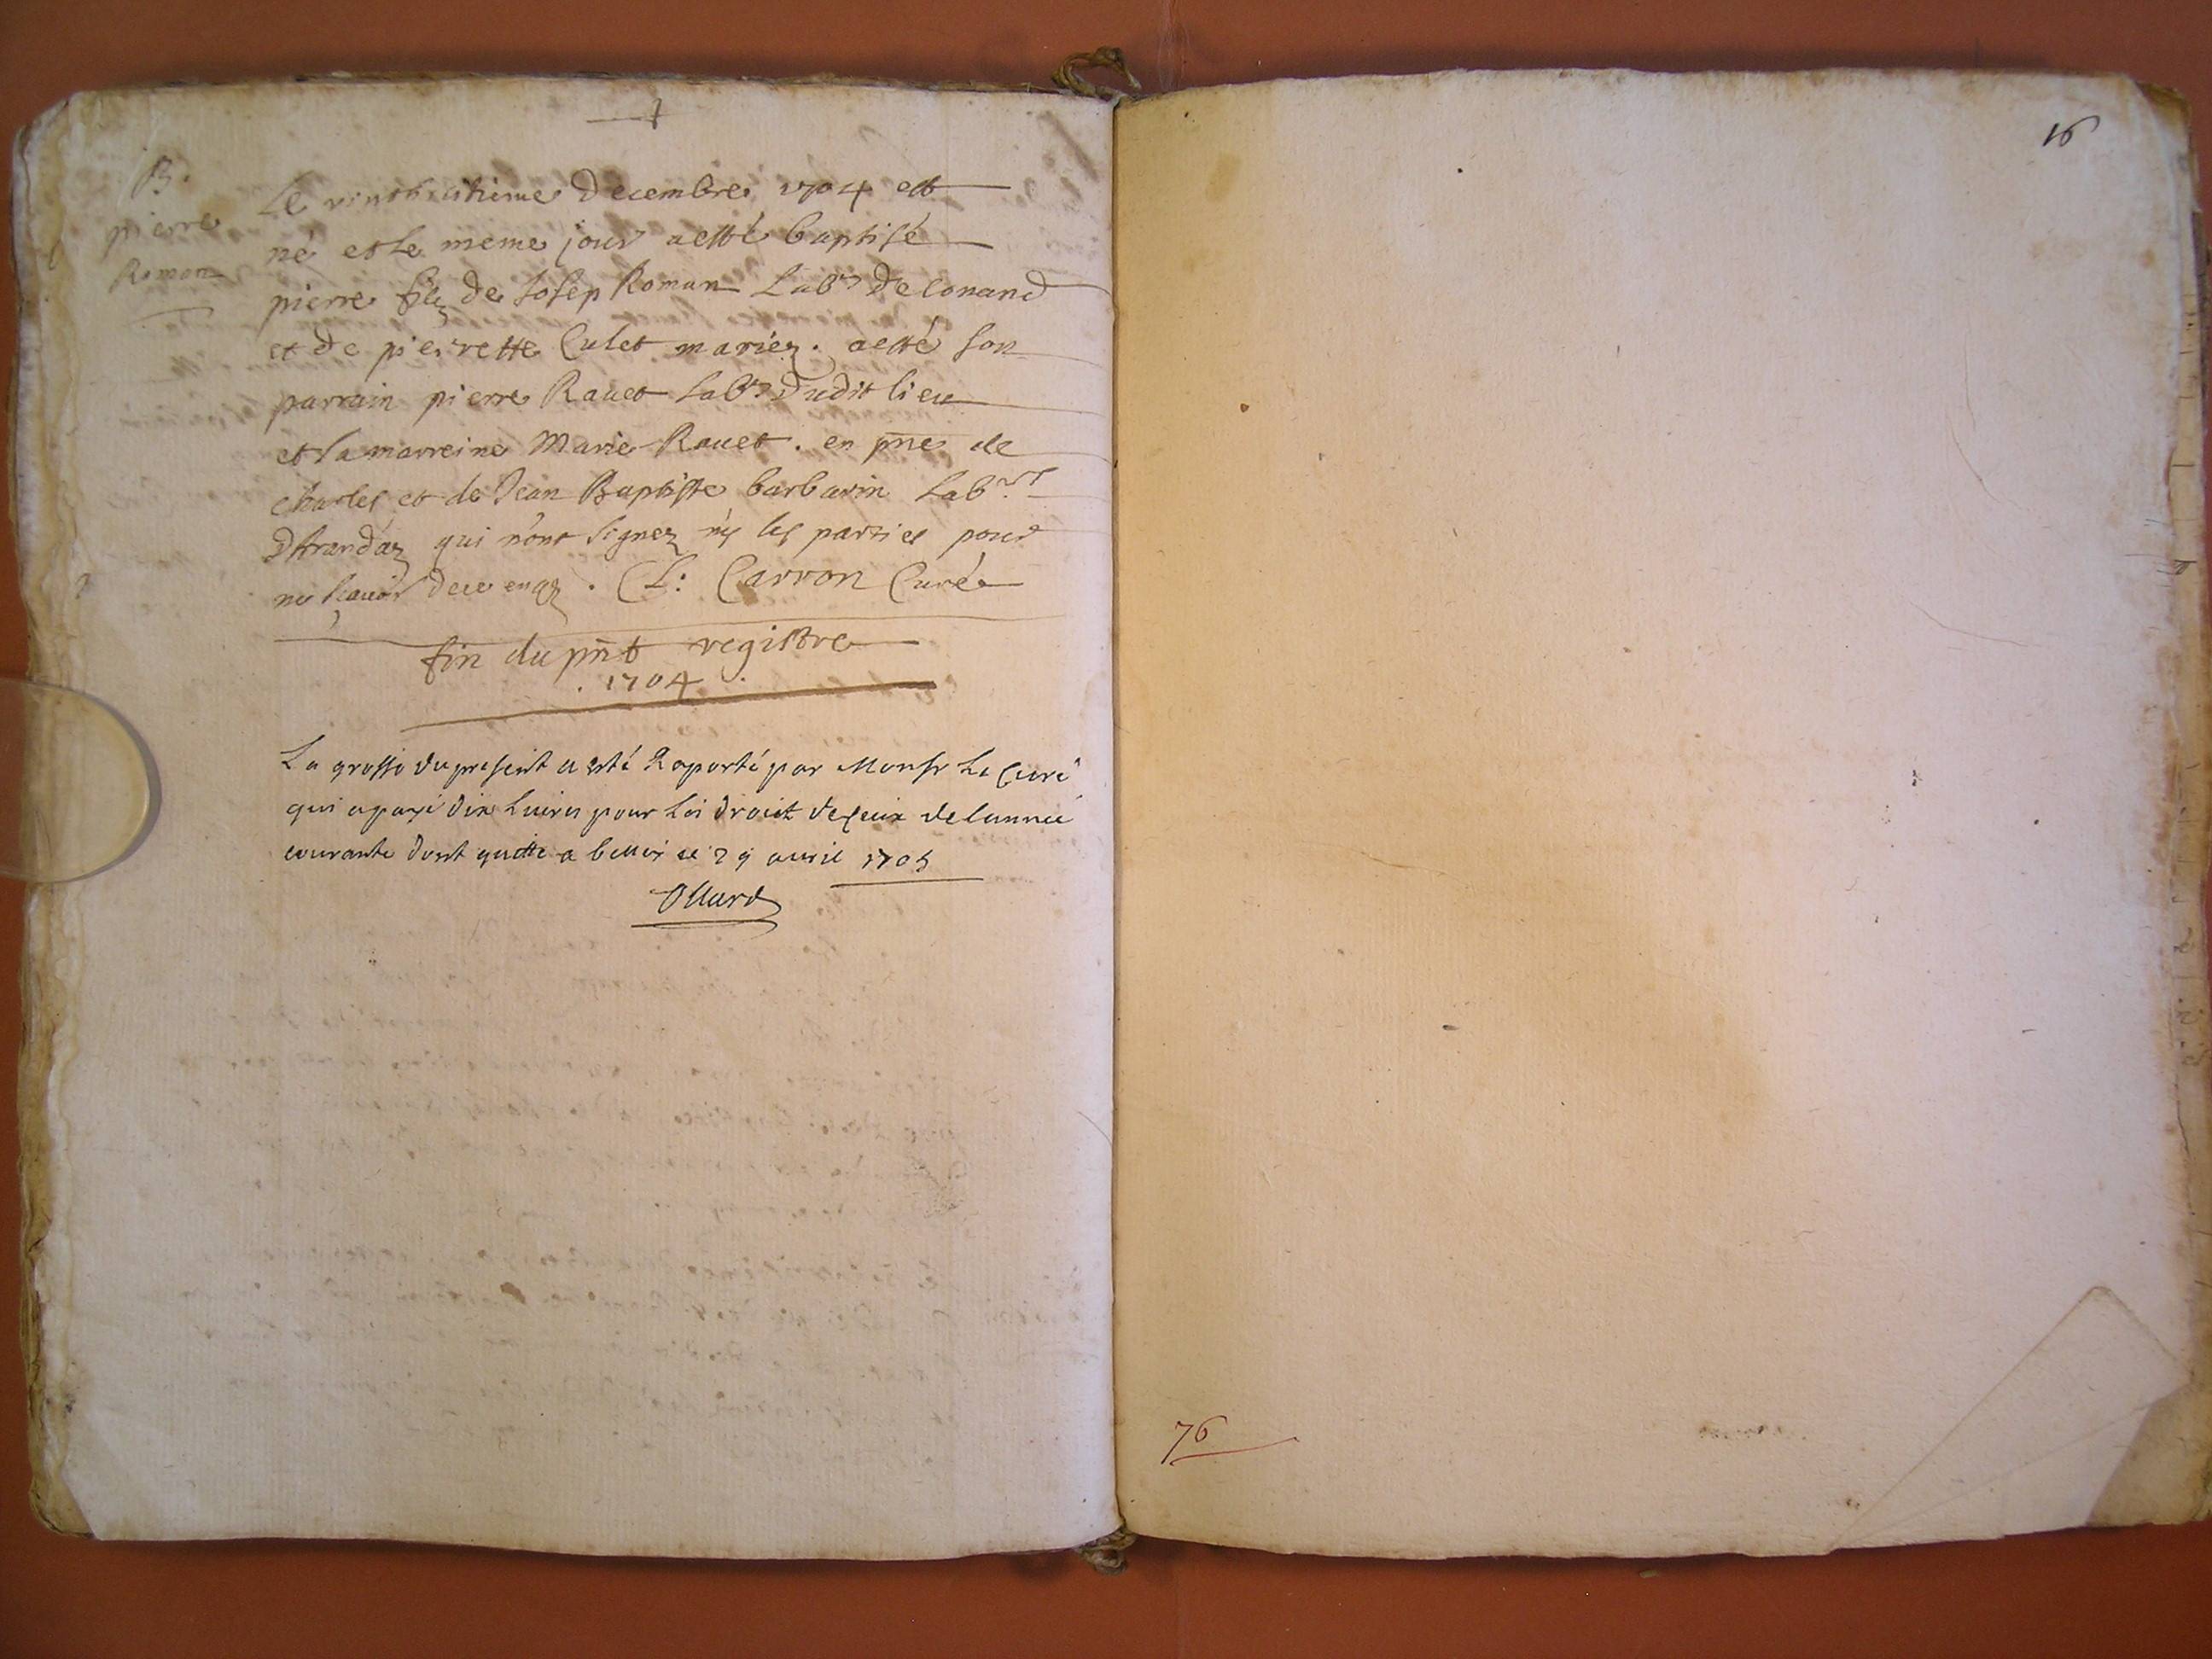 B.
pierre
Roman
Le vinthuitieme Decembre 1704 est
né et le meme jour a esté baptisé
pierre filz de Josep Roman Lab.r De conand
et de pierrette Culet mariez. a esté son
parrain pierre Rauet Lab.r Dudit lieu
et sa marreine Marie Rauet. en pñe de
charles et de Jean Baptiste barbarin Lab.rs
DArandaz qui n'ont signez nÿ les parties pour
ne scauoir de ce enqz. C L: Carron Curé
fin du pñt registre
. 1704 .
La grosse du present a esté Raporté par Monsr Le Curé
qui a payé dix Liures pour Les droict de ceux de lannee
courante dont quitte a belley ce 29 auril 1705
Ollard
16
76